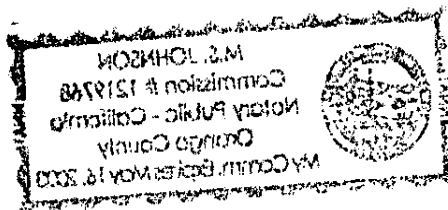 M.S. JOHNSON
Commission # 1219768
Notary Public - California
Orange County
My Comm. Expires May 16, 2003